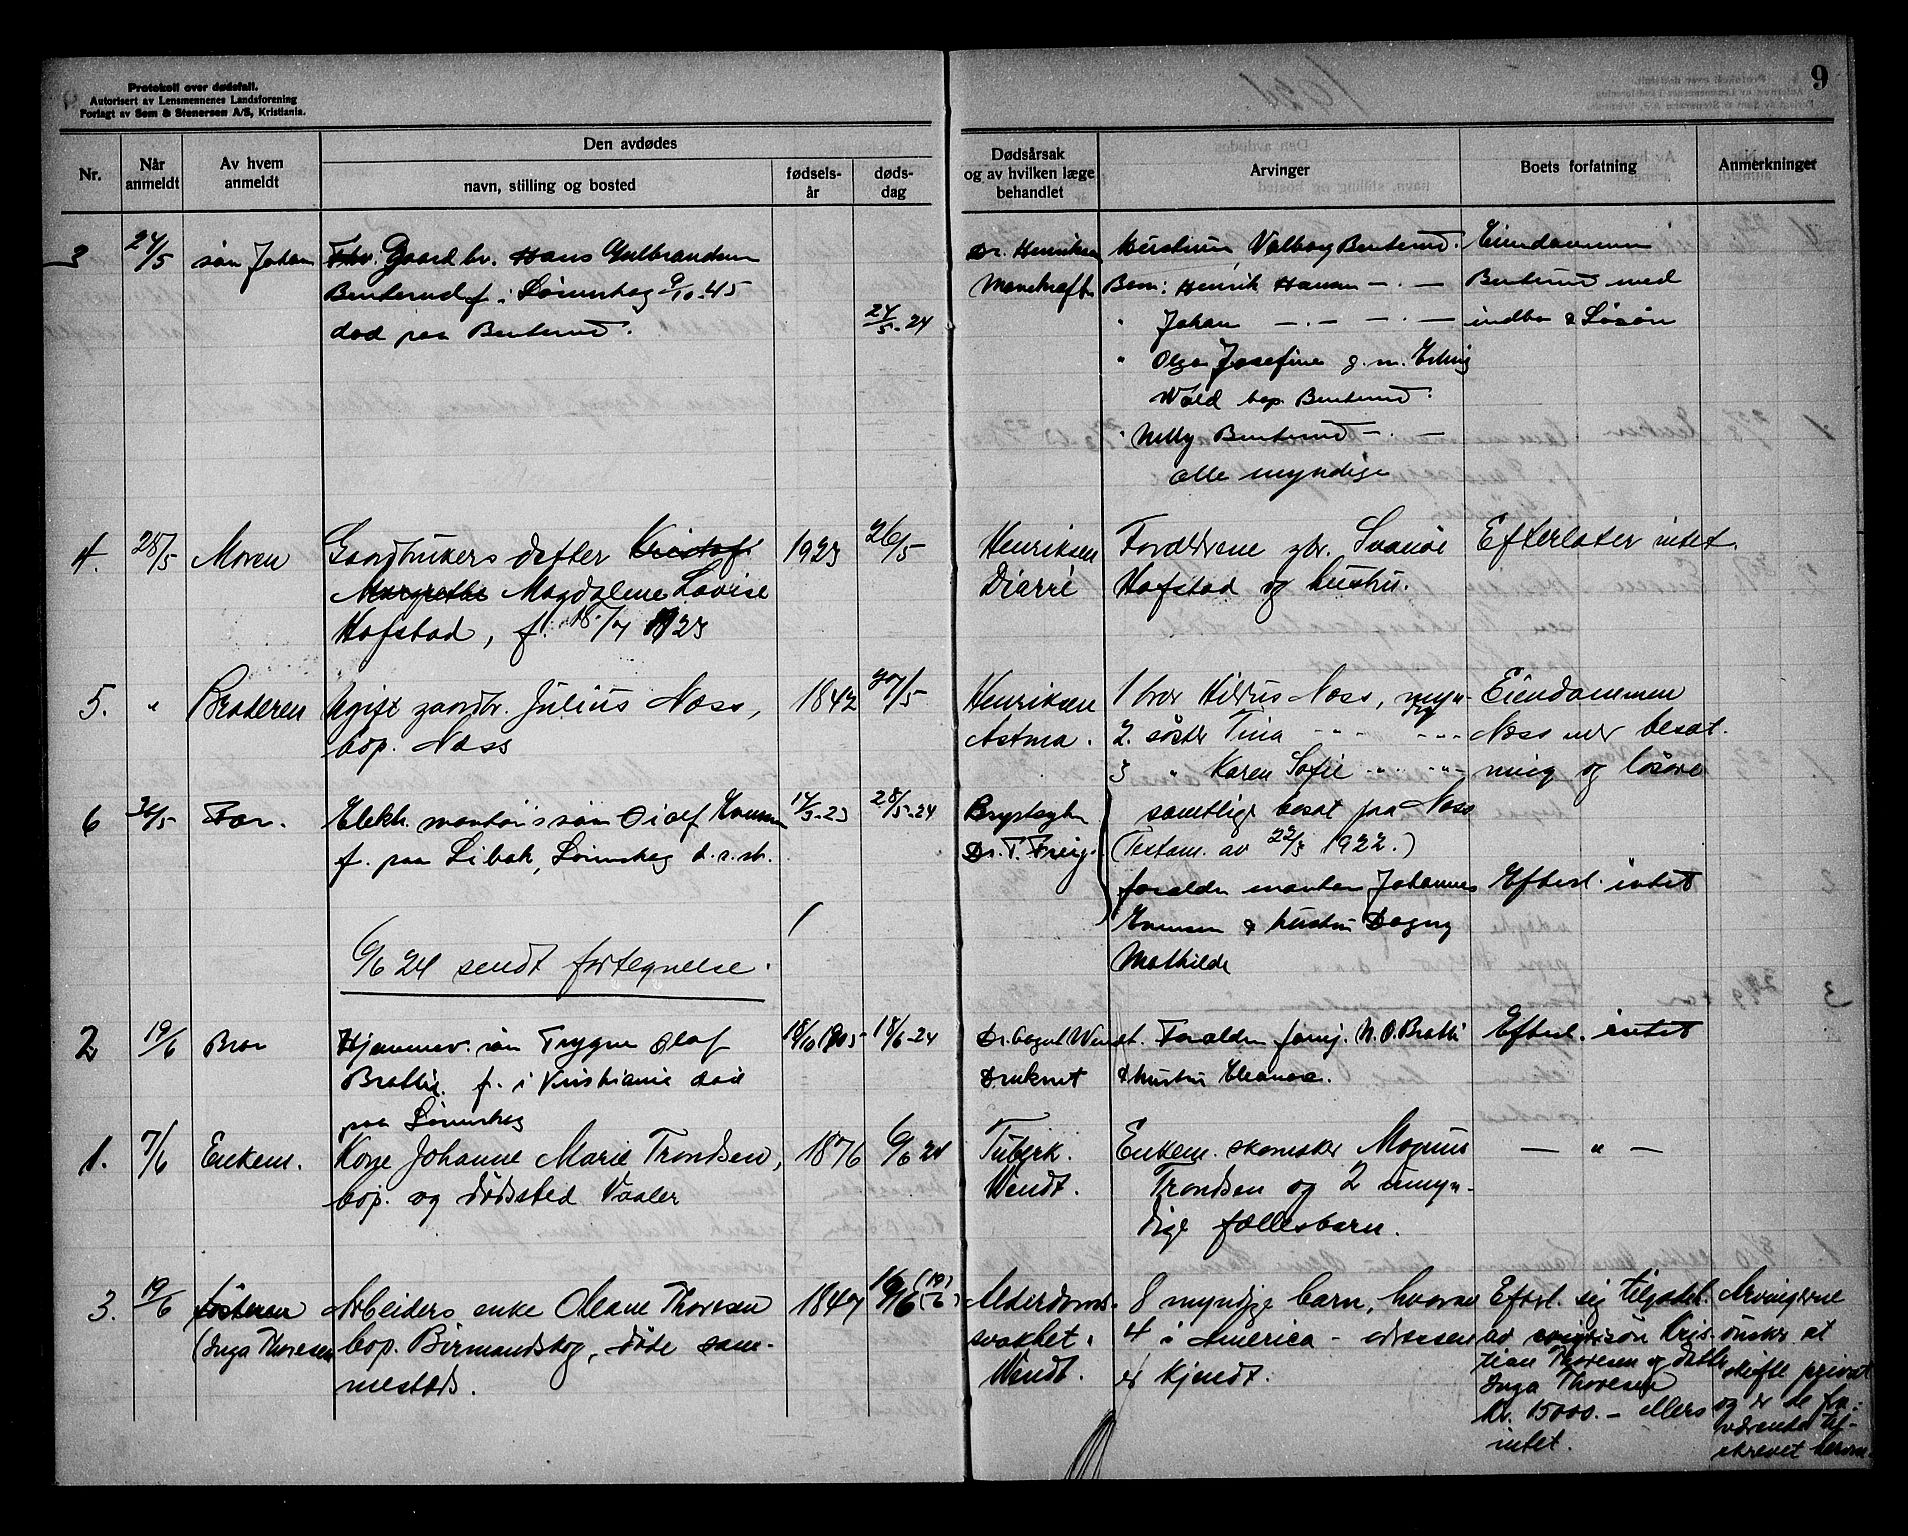 Protokoll over dødsfall.
Autorisert av Lensmennenes Landsforening
Forlagt av Sem & Stenersen A/S, Kristiania.
1924
9
Nr.
Når anmeldt
Av hvem anmeldt
Den avdødes
navn, stilling og bosted
fødsels-år
døds-dag
Dødsårsak og av hvilken læge behandlet
Arvinger
Boets forfatning
Anmerkninger
3 24/5 søn Johan
Fhv. Gaardbr. Hans Gulbrandsen
Benterud f. i Lørenskog 9/10-45
død paa Benterud.
24/5-24
Dr. Henriksen
Hustruen Valborg Benterud.
Barn: Henrik Hansen — . —
" Johan — . — — . —
" Olga Josefine g. m. Erling
Wold bop. Benterud.
" Nelly Benterud — . —
alle myndige
Eiendommen
Benterud med
indbo & Løsøre
4. 28/5 Moren
Gaardbrukers datter Kristof
Margrethe Magdalene Lovise
Hofstad, f. 15/4 1923
1923
26/5
Henriksen
Diarré
Foreldrene gbr. Svanøe
Hofstad og hustru.
Efterlater intet.
5. " Broderen
Ugift gaardbr. Julius Næss,
bop. Næss
1842
27/5
Henriksen
Astma.
1 bror Hilius Næss, myn-
dig
2. søster Tina - - - - - -
3 " Karen Sofie - - - - - -
samtlige besat paa Næss
(Testam. av 22/3 1922.)
Eiendommen
Næss med besæt.
ning og løsøre
6 30/5 Far.
Elektr. montørs søn Oiolf Evensen
f. paa Libak, Lørenskog d. s. st.
17/3-23
28/5-24
Dr. T. Freig.
forældre montør Johannes
Evensen & hustru Dagny
Mathilde
Efterl. intet
6/6 24 sendt fortegnelse.
2 19/6 Bror
Hjemmev. søn Trygve Olaf
Brattli f. i Kristiania død
paa Lørenskog
18/10 1905
18/6-24
Dr. August Wendt.
Druknet
Forældre N. O. Brattli
& hustru Eleanora.
Efterl. intet
1. 7/6 Enkem.
Kone Johanne Marie Trondsen,
bop. og dødssted Vaaler
1876
6/6 24
Tuberk.
Wendt.
Enkem. skomaker Magnus
Trondsen og 2 umyn-
dige fællesbarn.
— " —
3. 19/6 søsteren
(Inga Thoresen
Arbeiders enke Oleane Thoresen
bop. Birmandskog, døde sam-
mesteds.
1847
16/6 (19/6)
Alderdoms-
svakhet.
Wendt.
8 myndige barn, hvorav
4 i America - adressen
er kjendt.
Efterl. sig tilgodeh.
av søn Kris-
tian Thoresen og datter
Inga Thoresen
Kr. 15000.- ellers
intet.
Arvingerne
ønsker at
skifte privat
og er de fra-
værende til-
skrevet herom.